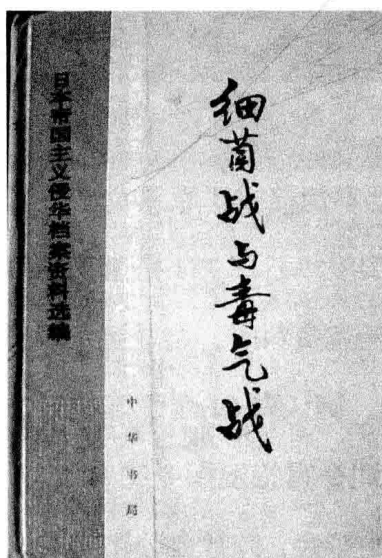 日本帝国主义侵华档案资料选编
细菌战与毒气战
中华书局